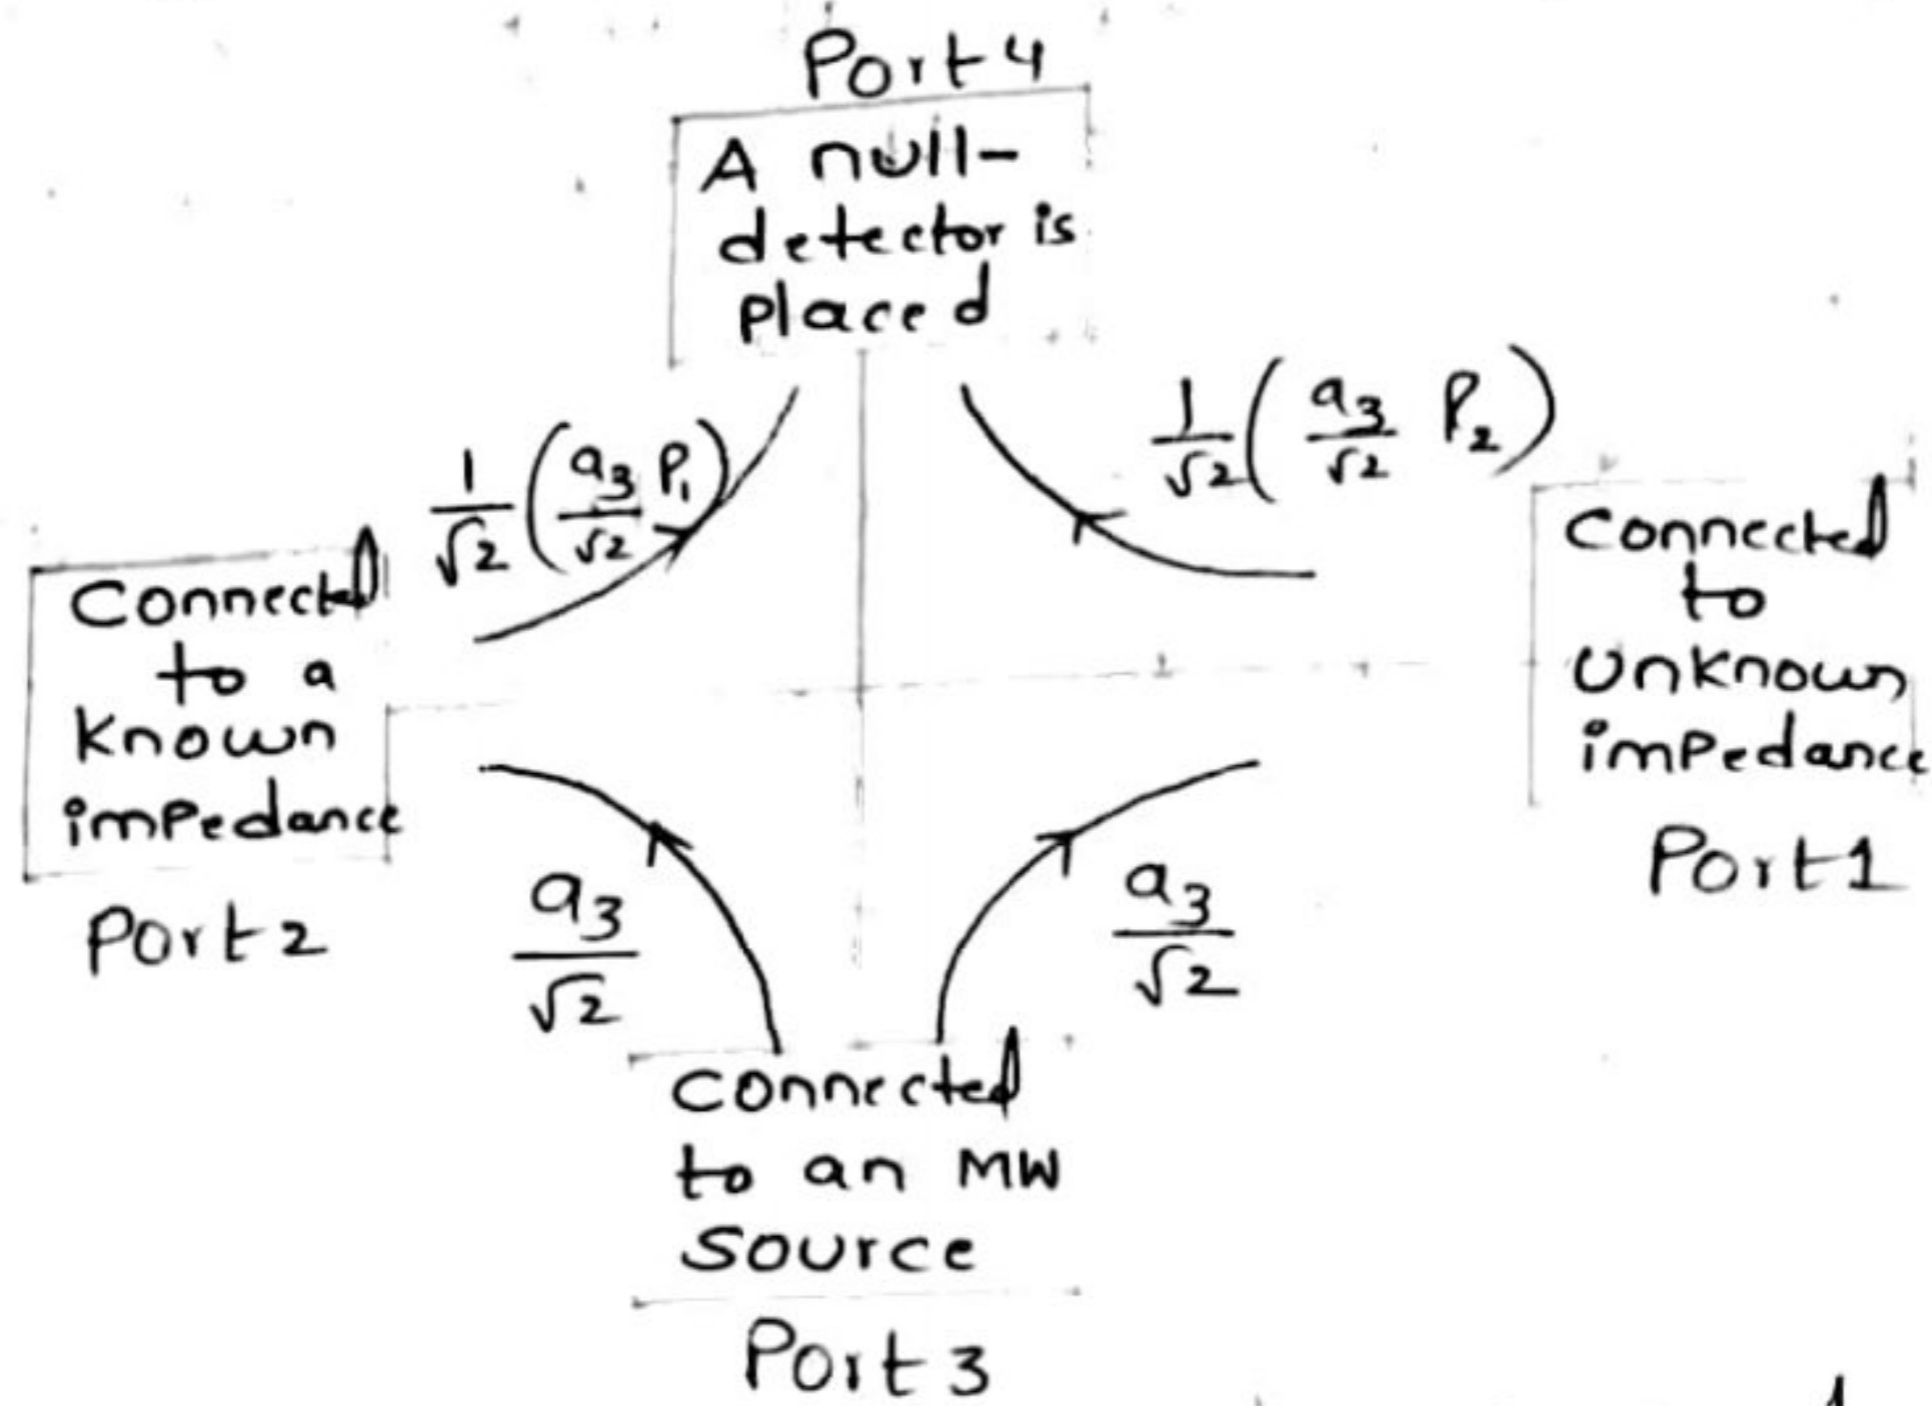 Port 4
A null-
detector is
placed
1/√2 (a3/√2 P1)
1/√2 (a3/√2 P2)
Connected
to a
known
impedance
Port 2
Connected
to
Unknown
impedance
Port 1
a3/√2
a3/√2
Connected
to an MW
Source
Port 3